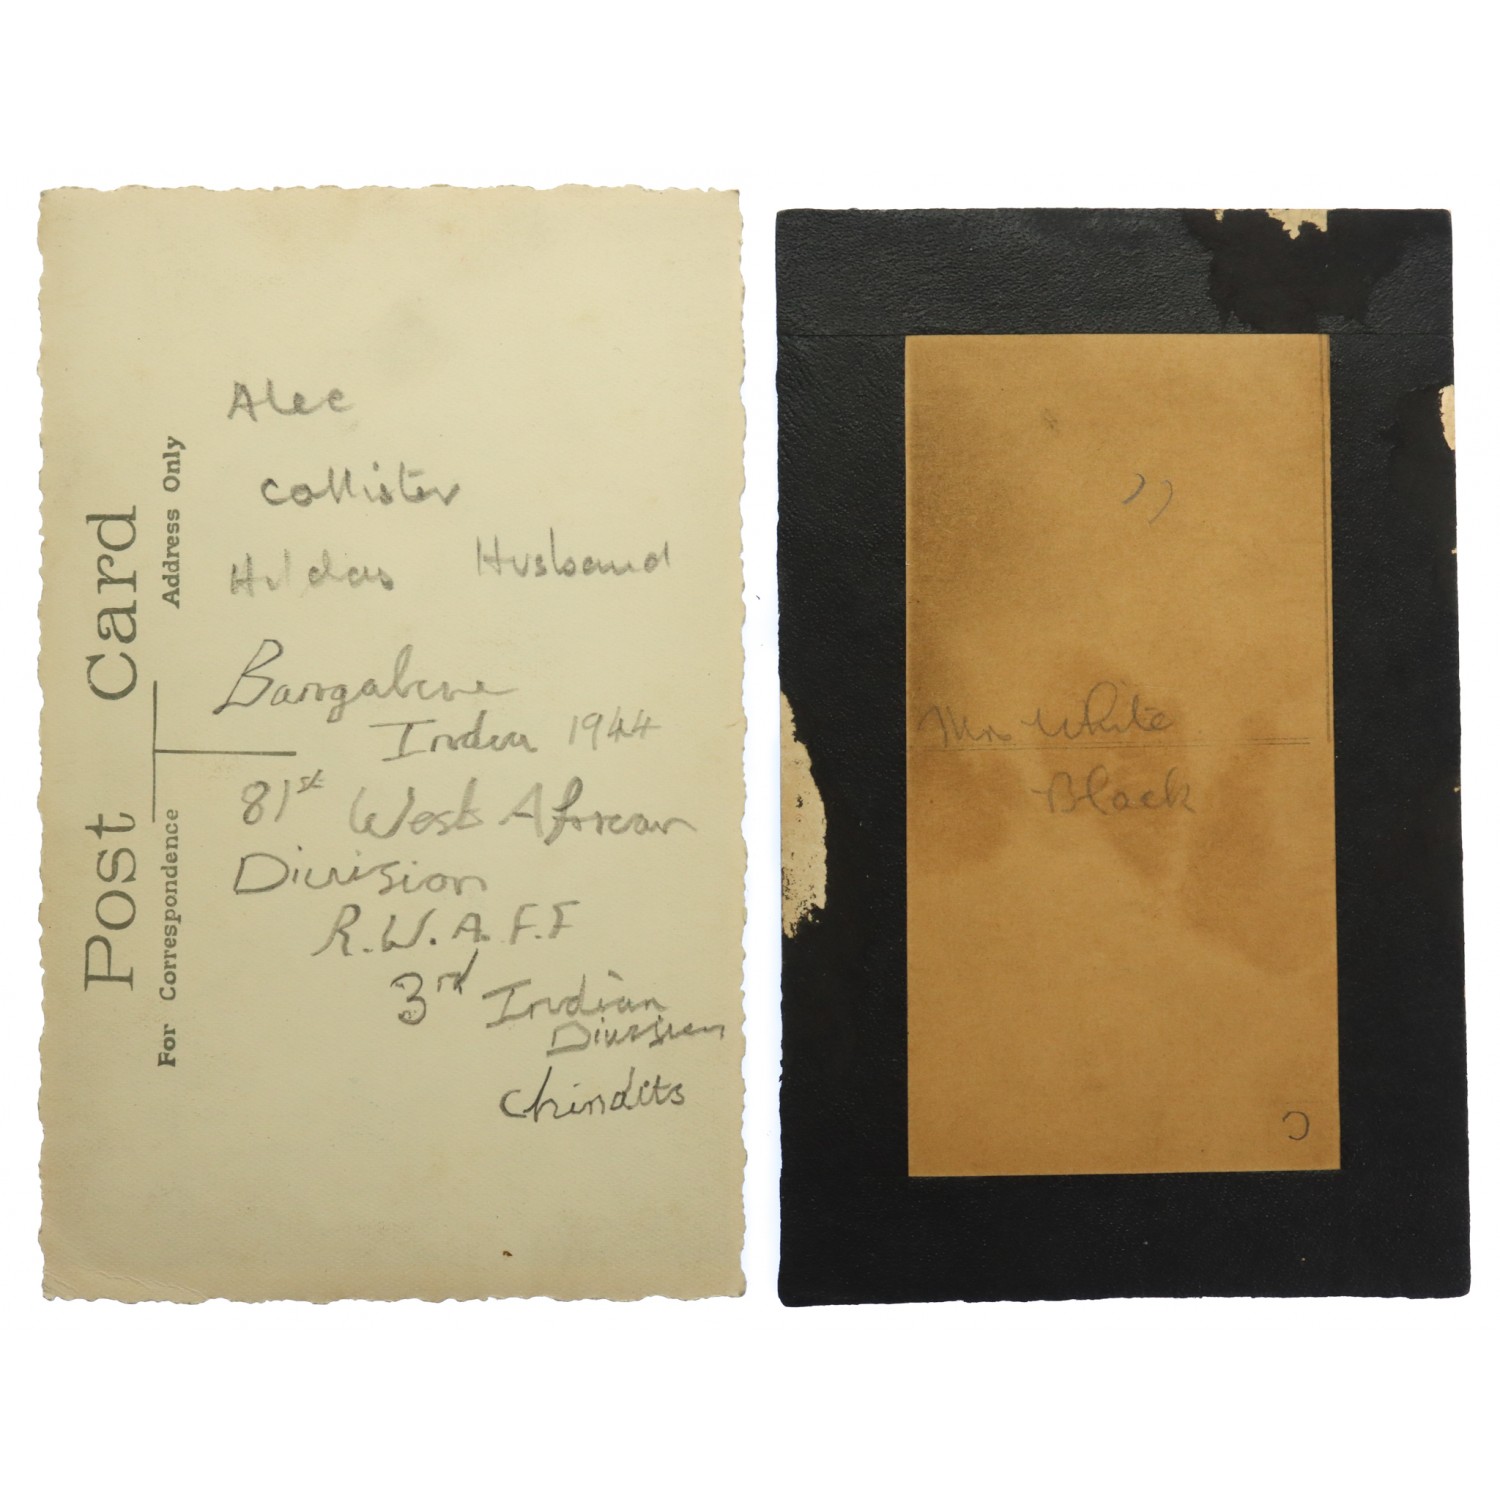 Post Card
For Correspondence
Address Only
Alec
Collister
Hildas Husband
Bangalore
India 1944
81st West African
Division
R.W.A.F.F
3rd Indian
Division
Chindits
Mrs White
Black